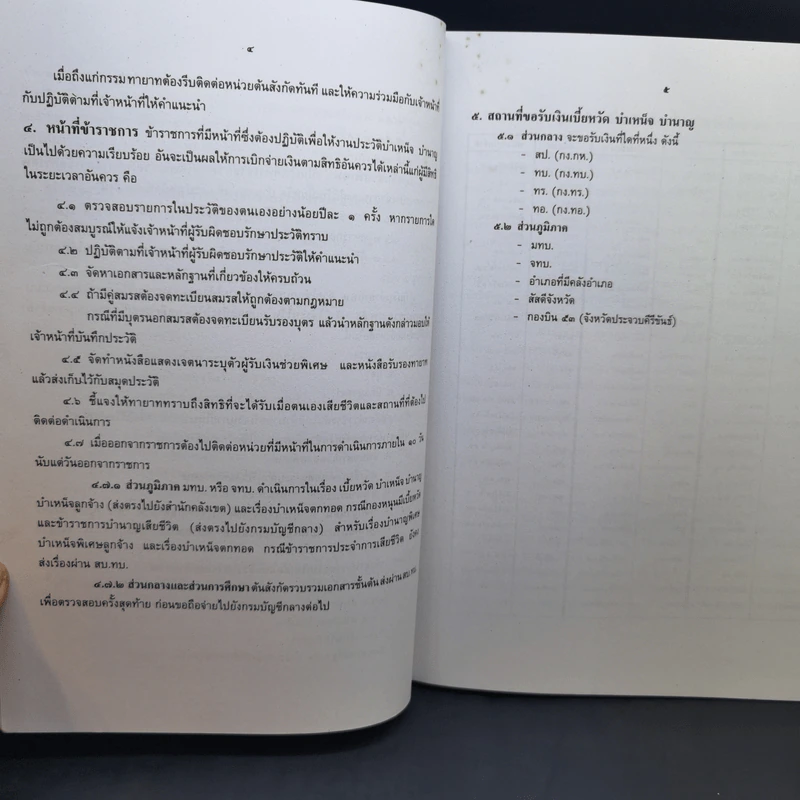 ๔
เมื่อถึงแก่กรรม ทายาทต้องรีบติดต่อหน่วยต้นสังกัดทันที และให้ความร่วมมือกับเจ้าหน้าที่
กับปฏิบัติตามที่เจ้าหน้าที่ให้คำแนะนำ
๔. หน้าที่ข้าราชการ ข้าราชการที่มีหน้าที่ซึ่งต้องปฏิบัติเพื่อให้งานประวัติบำเหน็จ บำนาญ
เป็นไปด้วยความเรียบร้อย อันจะเป็นผลให้การเบิกจ่ายเงินตามสิทธิอันควรได้เหล่านี้แก่ผู้มีสิทธิ
ในระยะเวลาอันควร คือ
๔.๑ ตรวจสอบรายการในประวัติของตนเองอย่างน้อยปีละ ๑ ครั้ง หากรายการใด
ไม่ถูกต้องสมบูรณ์ให้แจ้งเจ้าหน้าที่ผู้รับผิดชอบรักษาประวัติทราบ
๔.๒ ปฏิบัติตามที่เจ้าหน้าที่ผู้รับผิดชอบรักษาประวัติให้คำแนะนำ
๔.๓ จัดหาเอกสารและหลักฐานที่เกี่ยวข้องให้ครบถ้วน
๔.๔ ถ้ามีคู่สมรสต้องจดทะเบียนสมรสให้ถูกต้องตามกฎหมาย
กรณีที่มีบุตรนอกสมรสต้องจดทะเบียนรับรองบุตร แล้วนำหลักฐานดังกล่าวมอบให้
เจ้าหน้าที่บันทึกประวัติ
๔.๕ จัดทำหนังสือแสดงเจตนาระบุตัวผู้รับเงินช่วยพิเศษ และหนังสือรับรองทายาท
แล้วส่งเก็บไว้กับสมุดประวัติ
๔.๖ ชี้แจงให้ทายาททราบถึงสิทธิที่จะได้รับเมื่อตนเองเสียชีวิตและสถานที่ที่ต้องไป
ติดต่อดำเนินการ
๔.๗ เมื่อออกจากราชการต้องไปติดต่อหน่วยที่มีหน้าที่ในการดำเนินการภายใน ๑๐ วัน
นับแต่วันออกจากราชการ
๔.๗.๑ ส่วนภูมิภาค มทบ. หรือ จทบ. ดำเนินการในเรื่อง เบี้ยหวัด บำเหน็จ บำนาญ
บำเหน็จลูกจ้าง (ส่งตรงไปยังสำนักคลังเขต) และเรื่องบำเหน็จตกทอด กรณีกองหนุนมีเบี้ยหวัด
และข้าราชการบำนาญเสียชีวิต (ส่งตรงไปยังกรมบัญชีกลาง) สำหรับเรื่องบำนาญพิเศษ
บำเหน็จพิเศษลูกจ้าง และเรื่องบำเหน็จตกทอด กรณีข้าราชการประจำการเสียชีวิต
ส่งเรื่องผ่าน สบ.ทบ.
๔.๗.๒ ส่วนกลางและส่วนการศึกษา ต้นสังกัดรวบรวมเอกสารขั้นต้น ส่งผ่าน สบ.ทบ.
เพื่อตรวจสอบครั้งสุดท้าย ก่อนขอถือจ่ายไปยังกรมบัญชีกลางต่อไป
๕
๕. สถานที่ขอรับเงินเบี้ยหวัด บำเหน็จ บำนาญ
๕.๑ ส่วนกลาง จะขอรับเงินที่ใดที่หนึ่ง ดังนี้
- สป. (กง.กห.)
- ทบ. (กง.ทบ.)
- ทร. (กง.ทร.)
- ทอ. (กง.ทอ.)
๕.๒ ส่วนภูมิภาค
- มทบ.
- จทบ.
- อำเภอที่มีคลังอำเภอ
- สัสดีจังหวัด
- กองบิน ๕๓ (จังหวัดประจวบคีรีขันธ์)